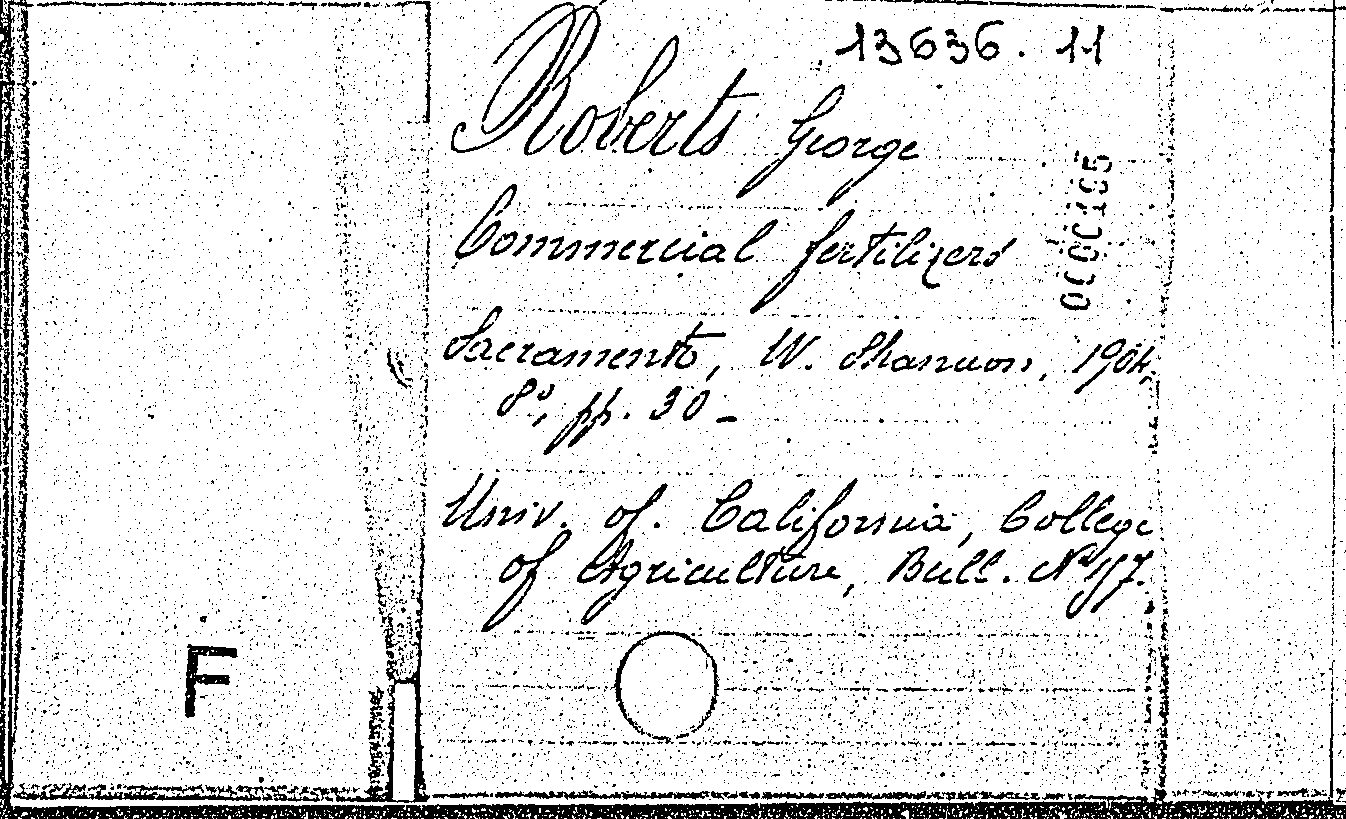 13636. 11
Roberts George
Commercial fertilizers
Sacramento, W. Shannon, 1904,
8°, pp. 30 -
Univ. of. California, College
of Agriculture, Bull. N°
F